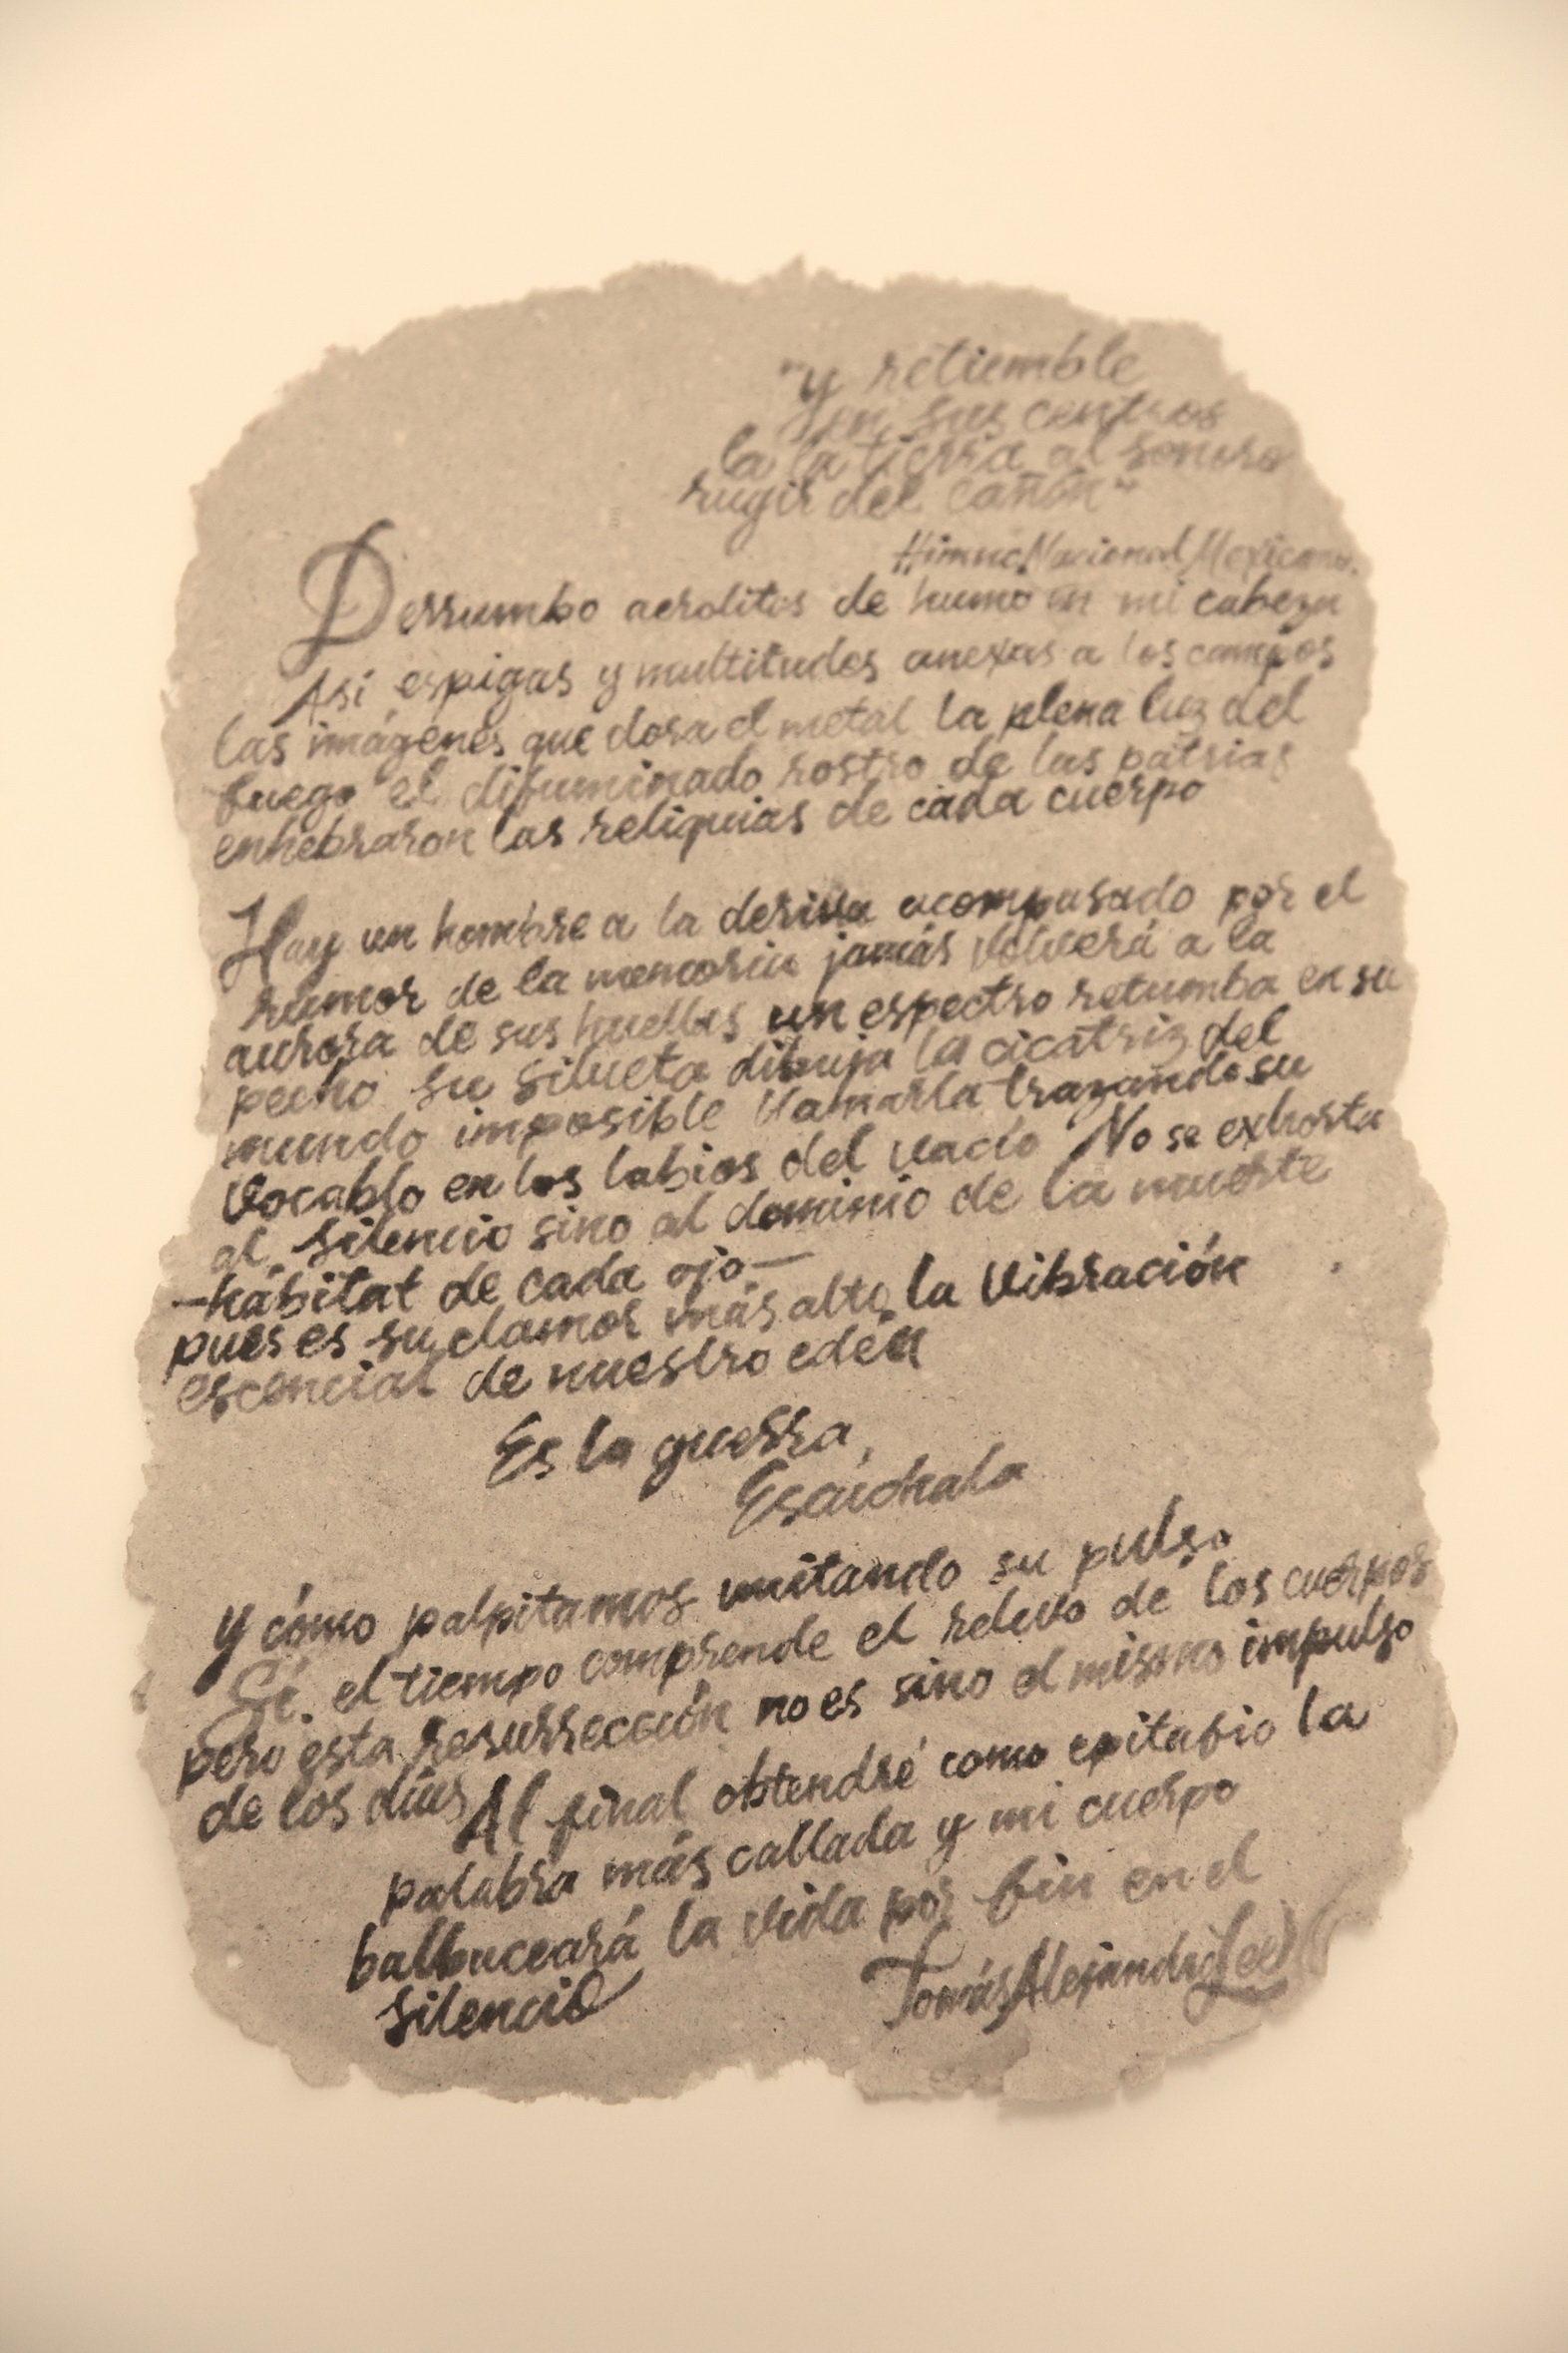 "y retiemble
en sus centros
la la tierra al sonoro
rugir del cañón"
Himno Nacional Mexicano.
Derrumbo aerolitos de humo en mi cabeza
Así espigas y multitudes anexas a los campos
las imágenes que dora el metal la plena luz del
fuego el difuminado rostro de las patrias
enhebraron las reliquias de cada cuerpo
Hay un hombre a la deriva acompasado por el
rumor de la memoria jamás volverá a la
aurora de sus huellas un espectro retumba en su
pecho su silueta dibuja la cicatriz del
mundo imposible llamarla trazando su
vocablo en los labios del vacío No se exhorta
al silencio sino al dominio de la muerte
—hábitat de cada ojo—
pues es su clamor más alto la vibración
escencial de nuestro edén
Es la guerra,
Escúchala
y cómo palpitamos imitando su pulso
Sí. el tiempo comprende el relevo de los cuerpos
pero esta resurrección no es sino el mismo impulso
de los días Al final obtendré como epitafio la
palabra más callada y mi cuerpo
balbuceará la vida por fin en el
silencio
Tomás Alejandro Lee